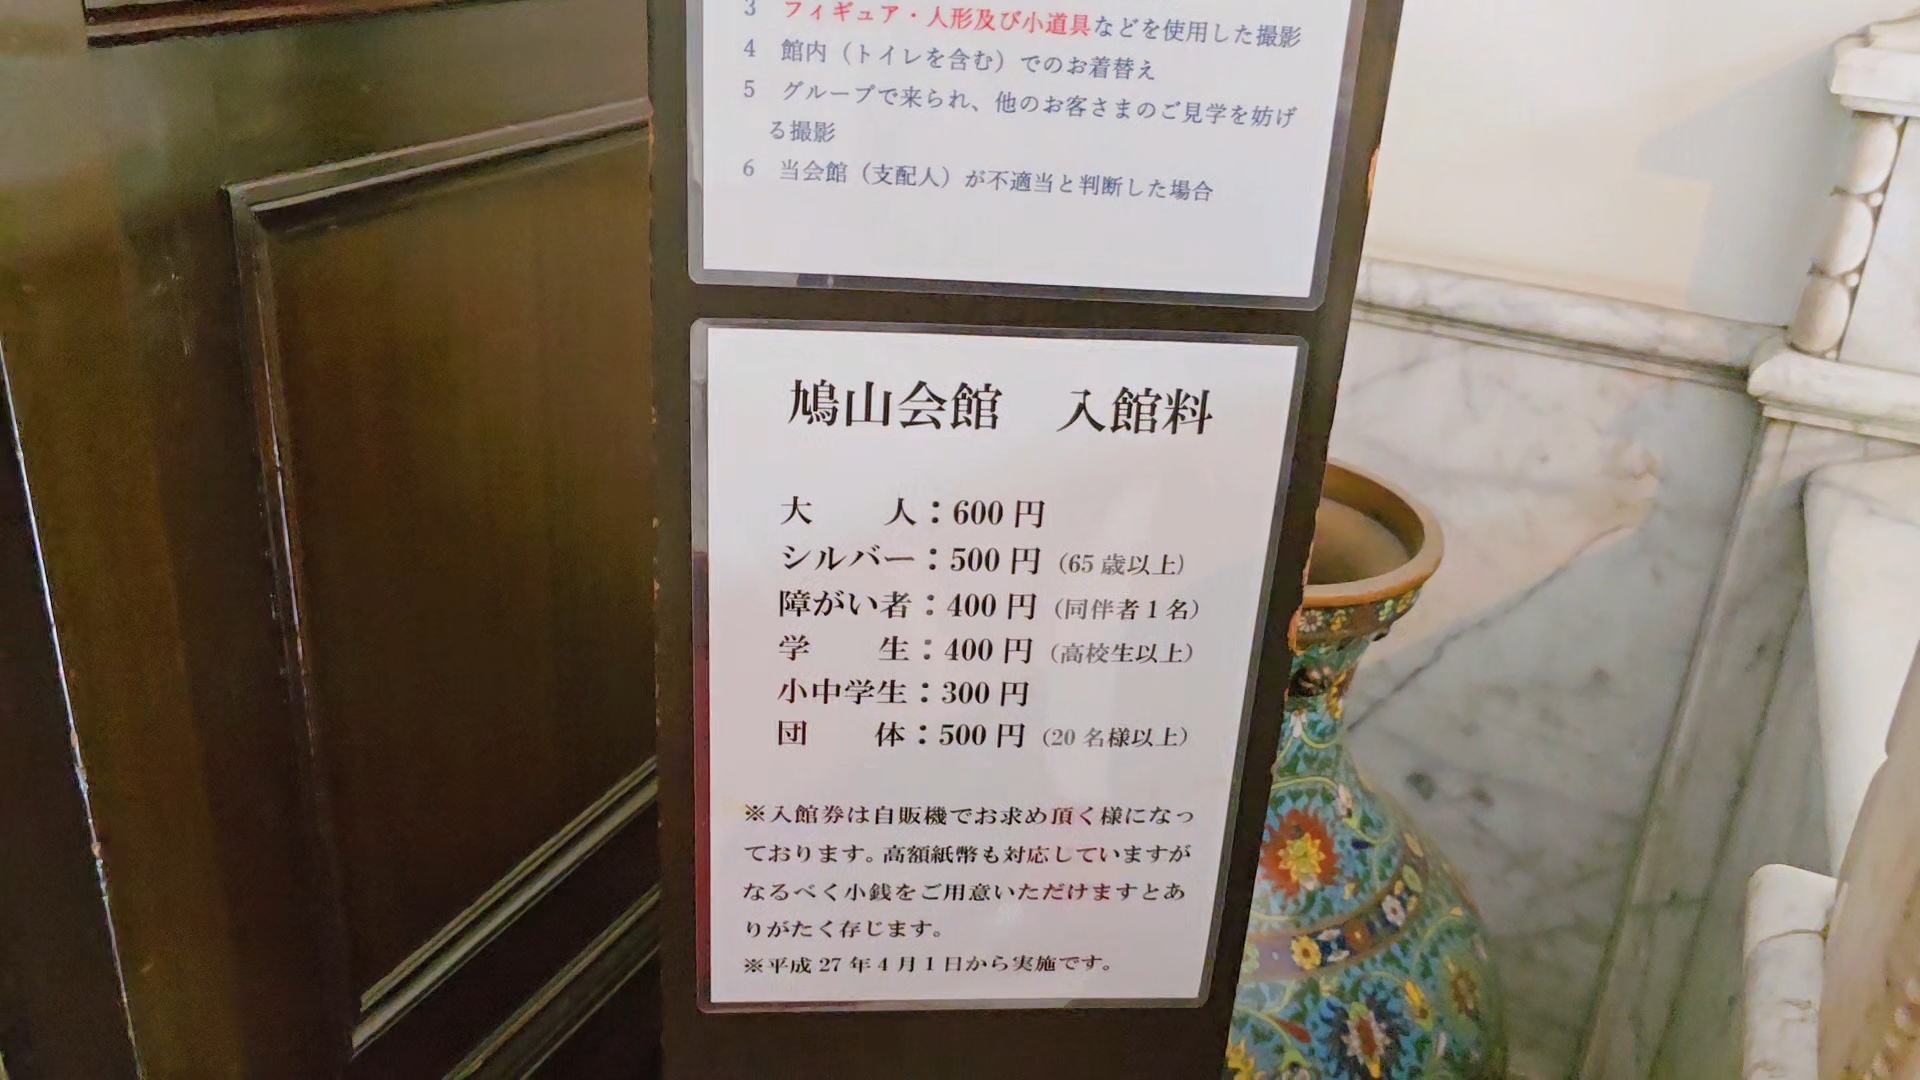 3 フィギュア・人形及び小道具などを使用した撮影
4 館内（トイレを含む）でのお着替え
5 グループで来られ、他のお客さまのご見学を妨げ
る撮影
6 当会館（支配人）が不適当と判断した場合
鳩山会館 入館料
大人：600円
シルバー：500円（65歳以上）
障がい者：400円（同伴者1名）
学生：400円（高校生以上）
小中学生：300円
団体：500円（20名様以上）
※入館券は自販機でお求め頂く様になっ
ております。高額紙幣も対応していますが
なるべく小銭をご用意いただけますとあ
りがたく存じます。
※平成27年4月1日から実施です。